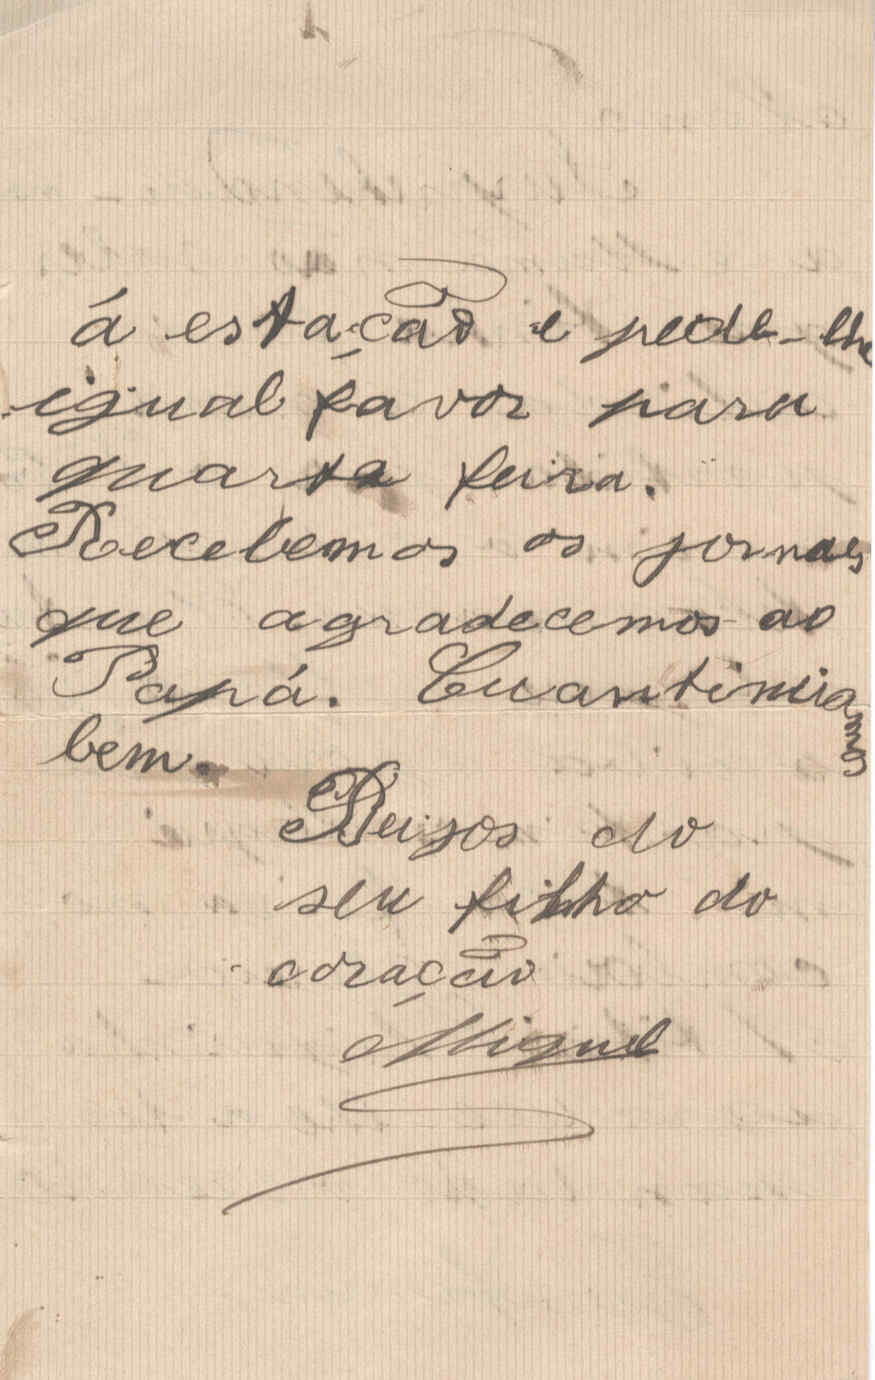 á estação e pede-lhe
igual favor para
quarta feira.
Recebemos os jornaes
que agradecemos ao
Papá. Cuantinuiamos
bem.
Beijos do
seu filho do
coração
Miguel